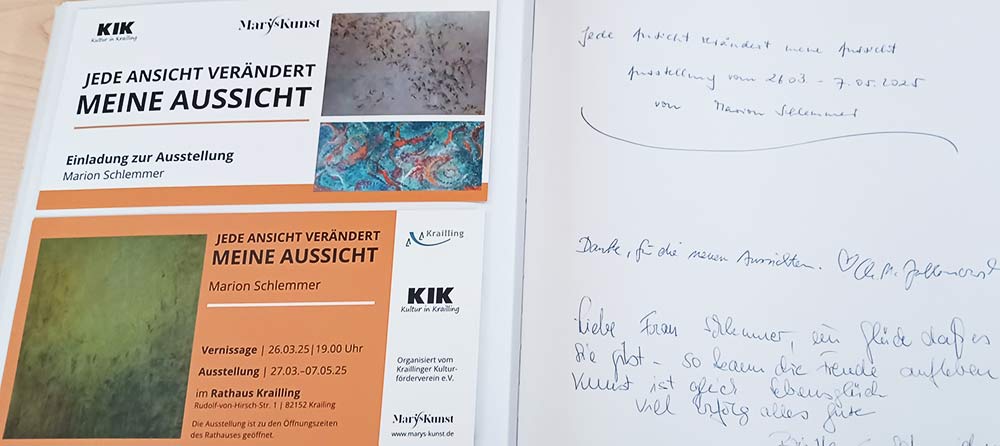 KIK
Kultur in Krailling
Mary'sKunst
JEDE ANSICHT VERÄNDERT
MEINE AUSSICHT
Einladung zur Ausstellung
Marion Schlemmer
JEDE ANSICHT VERÄNDERT
MEINE AUSSICHT
Marion Schlemmer
Vernissage | 26.03.25|19.00 Uhr
Ausstellung | 27.03.–07.05.25
im Rathaus Krailling
Rudolf-von-Hirsch-Str. 1 | 82152 Krailing
Die Ausstellung ist zu den Öffnungszeiten
des Rathauses geöffnet.
Krailling
KIK
Kultur in Krailling
Organisiert vom
Kraillinger Kultur-
förderverein e.V.
Mary'sKunst
www.marys-kunst.de
Jede Ansicht verändert meine Aussicht
Ausstellung vom 26.03. – 7.05.2025
von Marion Schlemmer
Danke, für die neuen Aussichten. ♡
Liebe Frau Schlemmer, ein Glück daß es
Sie gibt – so kann die Freude aufleben
Kunst ist gleich Lebensglück
viel Erfolg alles gute